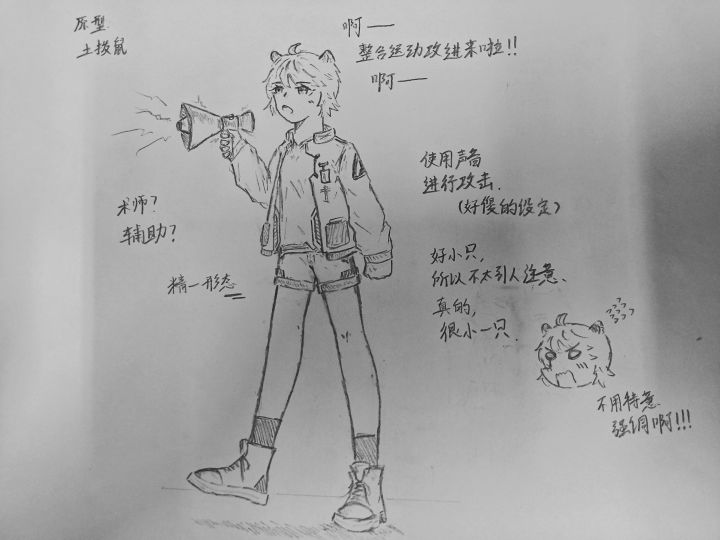 原型
土拨鼠
啊——
整合运动攻进来啦!!
啊——
使用声音
进行攻击.
(好傻的设定)
术师?
辅助?
精一形态
好小只,
所以不太引人注意.
真的,
很小一只.
???
????
不用特意
强调啊!!!